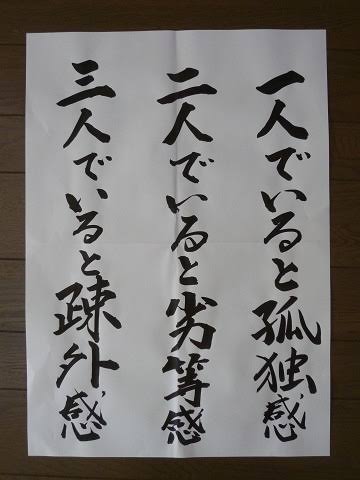 一人でいると孤独感
二人でいると劣等感
三人でいると疎外感